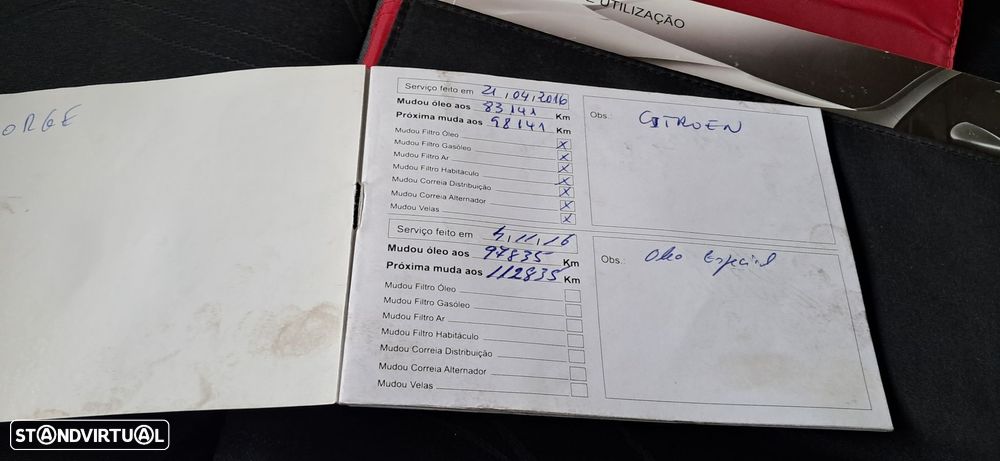 E UTILIZAÇÃO
ORGE
Serviço feito em 21,04,2016
Mudou óleo aos 83141 Km
Próxima muda aos 98141 Km
Mudou Filtro Óleo X
Mudou Filtro Gasóleo X
Mudou Filtro Ar X
Mudou Filtro Habitáculo X
Mudou Correia Distribuição X
Mudou Correia Alternador X
Mudou Velas X
Obs.: CITROEN
Serviço feito em 4,11,16
Mudou óleo aos 97835 Km
Próxima muda aos 112835 Km
Mudou Filtro Óleo
Mudou Filtro Gasóleo
Mudou Filtro Ar
Mudou Filtro Habitáculo
Mudou Correia Distribuição
Mudou Correia Alternador
Mudou Velas
Obs.: Oleo Especial
STANDVIRTUAL